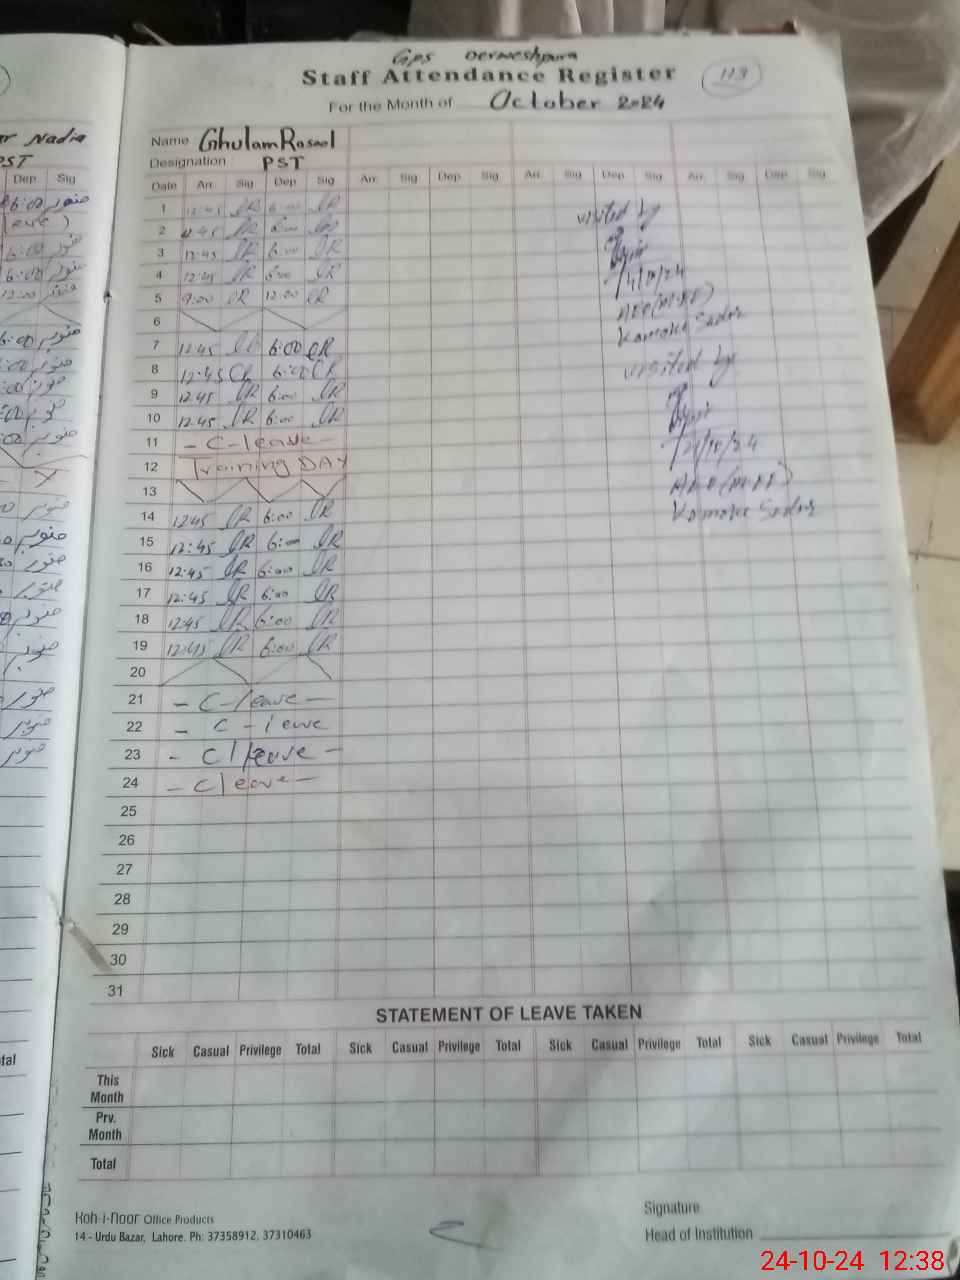 GPS Derweshpura
Staff Attendance Register
113
For the Month of October 2024
Nadia
PST
Name Ghulam Rasool
Designation PST
Dep Sig
Date Arr Sig Dep Sig Arr Sig Dep Sig Arr Sig Dep Sig Arr Sig Dep Sig
1 12:45 GR 6:00 GR
2 12:45 GR 6:00 GR
3 12:45 GR 6:00 GR
4 12:45 GR 6:00 GR
5 9:00 GR 12:00 GR
6
7 12:45 GR 6:00 GR
8 12:45 GR 6:00 GR
9 12:45 GR 6:00 GR
10 12:45 GR 6:00 GR
11 - C-leave -
12 Training DAY
13
14 12:45 GR 6:00 GR
15 12:45 GR 6:00 GR
16 12:45 GR 6:00 GR
17 12:45 GR 6:00 GR
18 12:45 GR 6:00 GR
19 12:45 GR 6:00 GR
20
21 - C-leave -
22 - C - leave
23 - C leave -
24 - C leave -
25
26
27
28
29
30
31
visited by
AEO (M-EE)
Kamoke Sadar
visited by
AEO (M-EE)
Kamoke Sadar
STATEMENT OF LEAVE TAKEN
Sick Casual Privilege Total Sick Casual Privilege Total Sick Casual Privilege Total Sick Casual Privilege Total
This Month
Prv. Month
Total
Koh-i-Noor Office Products
14 - Urdu Bazar, Lahore. Ph: 37358912, 37310463
Signature
Head of Institution
24-10-24 12:38